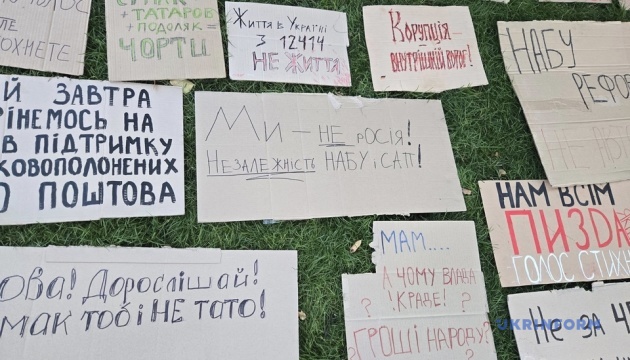 + ТАТАРОВ
+ ПОДОЛЯК =
ЧОРТИ
Життя в Україні
з 12414
НЕ життя
Корупція -
внутрішній ворог!
НАБУ
РЕФО
Й ЗАВТРА
РІНЕМОСЬ НА
В ПІДТРИМКУ
ЬКОВОПОЛОНЕНИХ
О ПОШТОВА
Ми – не росія!
Незалежність НАБУ і САП!
НАМ ВСІМ
ПИЗДА
ГОЛОС СТИХ
ова! Дорослішай!
мак тобі НЕ тато!
МАМ....
А ЧОМУ ВЛАДА
? КРАДЕ! ?
ГРОШІ НАРОДУ?
НЕ ЗА
UKRINFORM